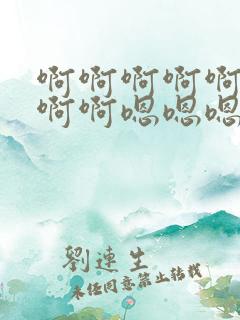 啊啊啊啊啊
啊啊嗯嗯嗯
劉連生
未经同意禁止转载